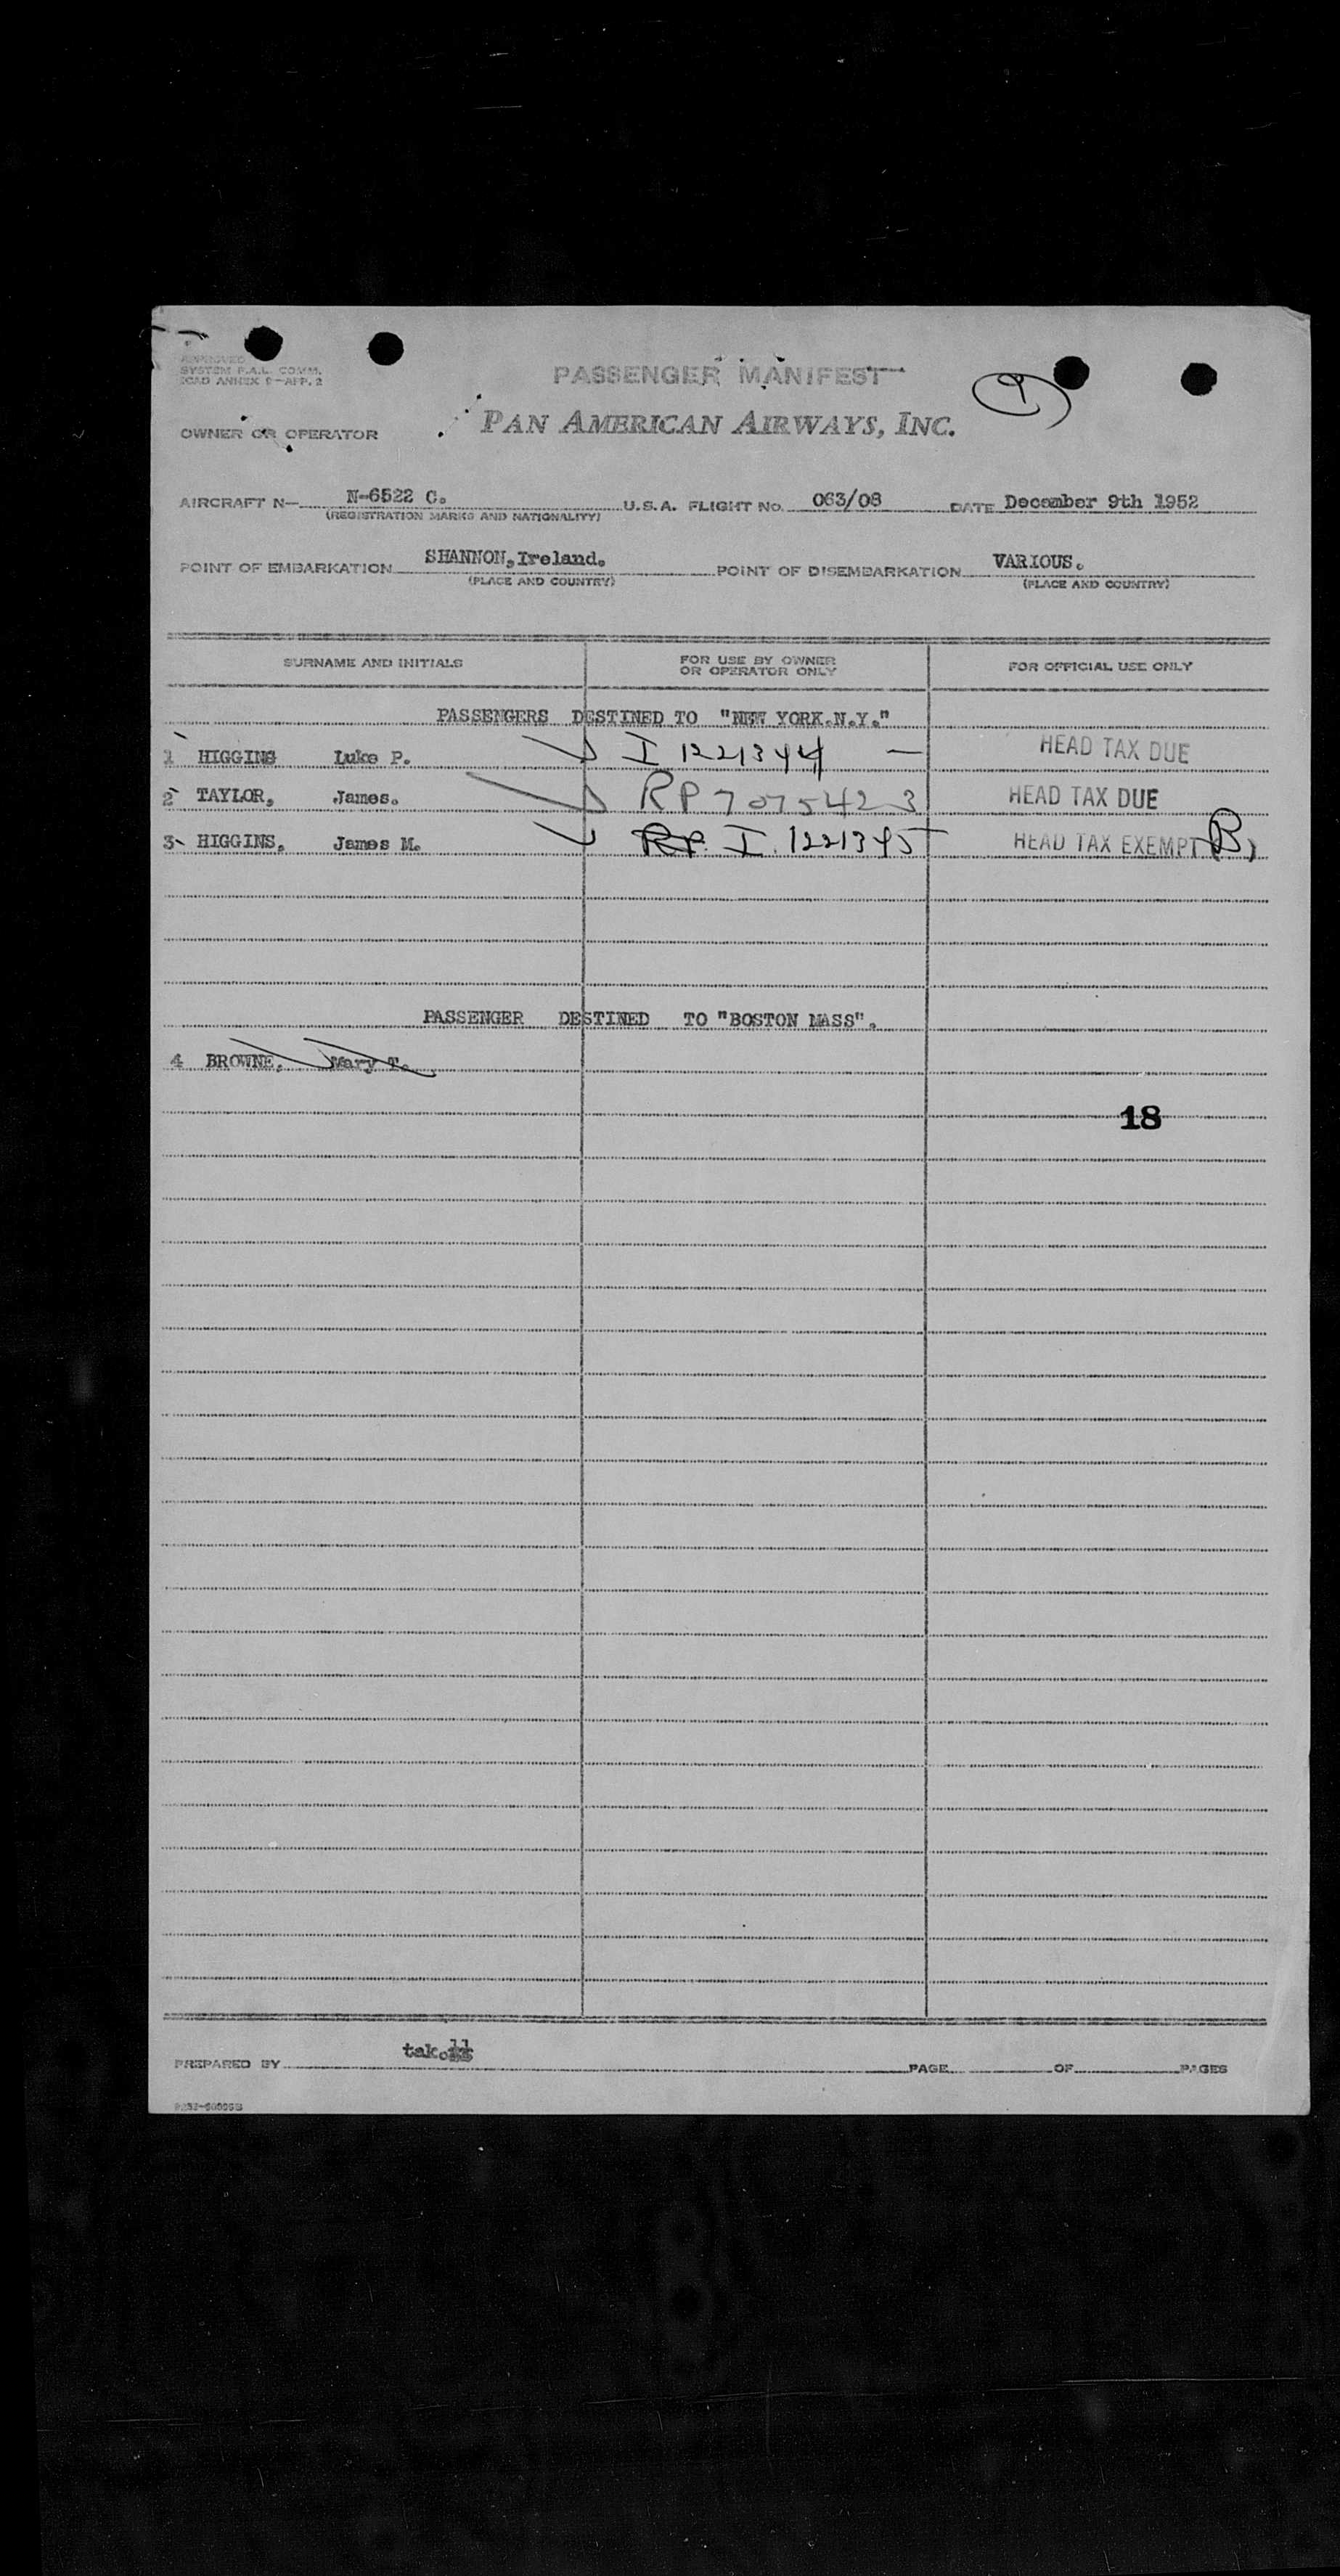 APPROVED
SYSTEM F.A.L. COMM.
ICAO ANNEX 9-APP. 2
PASSENGER MANIFEST
9
OWNER OR OPERATOR
PAN AMERICAN AIRWAYS, INC.
AIRCRAFT N— N-6522 C. U.S.A. FLIGHT NO. 063/08 DATE December 9th 1952
(REGISTRATION MARKS AND NATIONALITY)
POINT OF EMBARKATION SHANNON,Ireland. POINT OF DISEMBARKATION VARIOUS.
(PLACE AND COUNTRY) (PLACE AND COUNTRY)
SURNAME AND INITIALS FOR USE BY OWNER OR OPERATOR ONLY FOR OFFICIAL USE ONLY
PASSENGERS DESTINED TO "NEW YORK.N.Y."
1 HIGGINS Luke P. I 1221344 — HEAD TAX DUE
2 TAYLOR, James. RP 7075423 HEAD TAX DUE
3 HIGGINS, James M. RP. I. 1221345 HEAD TAX EXEMPT (B)
PASSENGER DESTINED TO "BOSTON MASS".
4 BROWNE, Mary T.
18
PREPARED BY tak. PAGE OF PAGES